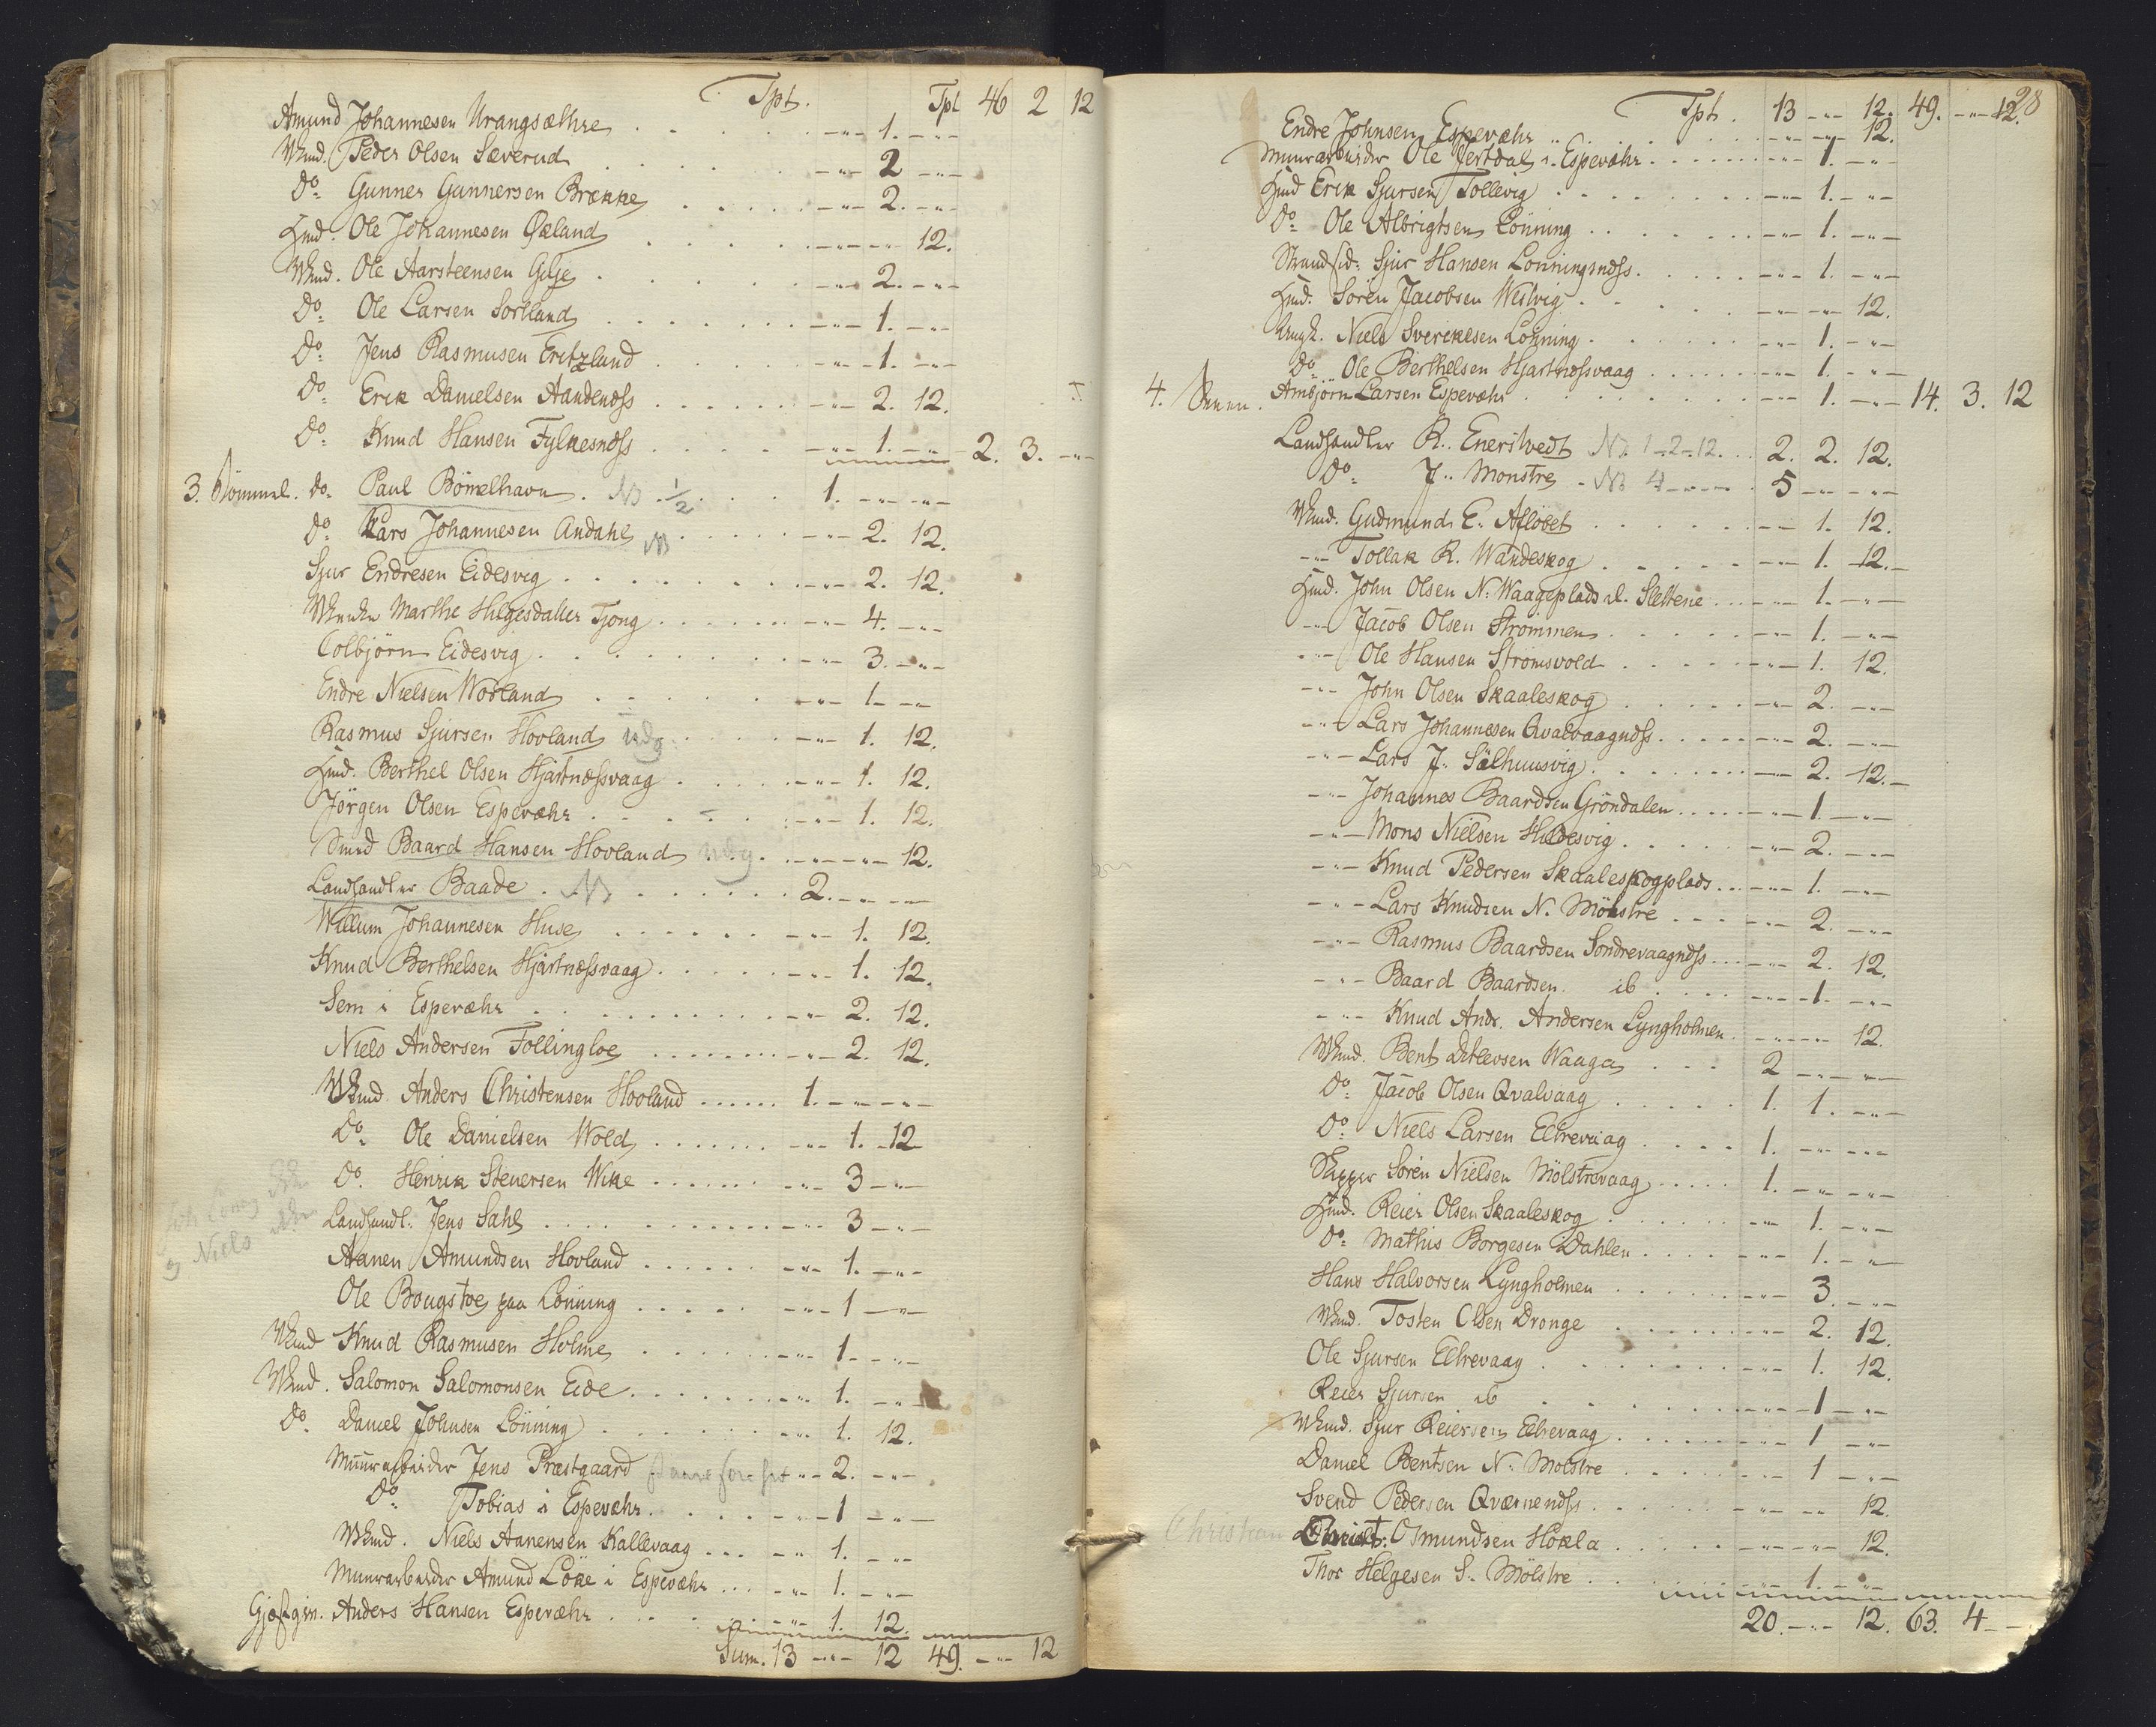 Tpt. Tpt 46 2 12
Amund Johannesen Urangsæthre . . . . . -"- 1. -"-
Ukmd. Peder Olsen Sæverud . . . . -"- 2 -"-
Do: Gunner Gunnersen Brekke . . . . -"- 2. -"-
Hmd. Ole Johannesen Qæland . . . . -"- -"- 12.
Ukmd. Ole Aarsteensen Gilje . . . . -"- 2. -"-
Do: Ole Larsen Sortland . . . . -"- 1. -"-
Do: Jens Rasmusen Eritzland . . . . -"- 1. -"-
Do: Erik Danielsen Aandenæss . . . . -"- 2. 12.
Do: Knud Hansen Fylkesnæss . . . . -"- 1. -"- 2. 3. -"-
3. Bömmel. Do. Paul Bömelhavn . NB 1/2 . . . 1. -"- -"-
Do: Lars Johannesen Andahl NB . . . . -"- 2. 12.
Sjur Endresen Eidesvig . . . . . -"- 2. 12.
Marthe Helgesdatter Tjong . . . . . -"- 4. -"-
Colbjörn Eidesvig . . . . . . -"- 3. -"-
Endre Nielsen Worland . . . . . -"- 1. -"-
Rasmus Sjursen Hovland udg. . . . . -"- 1. 12.
Hmd. Berthel Olsen Hjartnæssvaag . . . . -"- 1. 12.
Jörgen Olsen Espevæhr . . . . . -"- 1. 12.
Smed Baard Hansen Hovland udg . . . -"- -"- 12.
Landhandler Baade . NB . . . . 2. -"- -"-
Willum Johannesen Huse . . . . . -"- 1. 12.
Knud Berthelsen Hjartnæssvaag . . . . . -"- 1. 12.
Sem i Espevæhr . . . . . . -"- 2. 12.
Niels Andersen Föllingloe . . . . . -"- 2. 12.
Ukmd. Anders Christensen Hovland . . . . 1. -"- -"-
Do: Ole Danielsen Wold . . . . -"- 1. 12
Do. Henrik Stenersen Wike . . . . -"- 3 -"-
Landhandl. Jens Sahl . . . . . -"- 3 -"-
og Niels
Aanen Amundsen Hovland . . . . . -"- 1. -"-
Ole Bougstøe paa Lönning . . . . -"- 1 -"-
Ukmd Knud Rasmusen Holme . . . . -"- 1. -"-
Ukmd. Salomon Salomonsen Eide . . . . -"- 1. -"-
Do. Daniel Johnsen Lönning . . . . -"- 1. 12.
Muurarbeider Jens Præstgaard -"- 2. -"-
Do: Tobias i Espevæhr . . . . -"- 1 -"-
Ukmd. Niels Aanensen Kallevaag . . . -"- 1. -"-
Muurarbeider Amund Löke i Espevæhr . . . -"- 1. -"-
Gjæstgiv. Anders Hansen Espevæhr . . . -"- 1. 12.
Sum. 13 -"- 12 49. -"- 12
28
Tpt. 13 -"- 12. 49. -"- 12.
Endre Johnsen Espevæhr . . . . -"- -"- 12.
Muurarbeider Ole Jertdal i Espevæhr . . . . -"- 1. -"-
Hmd Erik Sjursen Tollevig . . . . -"- 1. -"-
Do: Ole Albrigtsen Lönning . . . . -"- 1. -"-
Strandsid: Sjur Hansen Lönningsnæss . . . . -"- 1. -"-
Hmd. Sören Jacobsen Westvig . . . . -"- -"- 12.
Ungk. Niels Sverckesen Lönning . . . . -"- 1. -"-
Do. Ole Berthelsen Hjartnæssvaag . . . . -"- 1. -"-
Arnbjörn Larsen Espevæhr . . . . -"- 1. -"- 14. 3. 12
4.
Landhandler R. Enerstvedt NB 1-2-12. . . 2. 2. 12.
Do: J.. Monstre . NB 4 -"- -"- . 5 -"- -"-
Ukmd. Gudmund E. Aflöbet . . . . . -"- 1. 12.
-"- Tollak R. Wandeskog . . . . . -"- 1. 12.
Hmd. John Olsen N. Waageplads el. Slettene . . . -"- 1. -"-
-"- Jacob Olsen Strömmen . . . . -"- 1. -"-
-"- Ole Hansen Strömsvold . . . . -"- 1. 12.
-"- John Olsen Skaaleskog . . . . -"- 2. -"-
-"- Lars Johannesen Qvalvaagnæss . . . . -"- 2. -"-
-"- Lars J. Sælhuusvig . . . . -"- 2. 12.
-"- Johannes Baardsen Gröndalen . . . . -"- 1. -"-
-"- Mons Nielsen Hildesvig . . . . -"- 2. -"-
-"- Knud Pedersen Skaaleskogplads . . . -"- 1. -"-
-"- Lars Knudsen N. Mölstre . . . . -"- 2. -"-
-"- Rasmus Baardsen Söndrevaagnæss . . . -"- 2. 12.
-"- Baard Baardsen ib . . . . -"- 1. -"-
-"- Knud Andr. Andersen Lyngholmen . -"- -"- 12.
Ukmd. Bent Ditlevsen Waage . . . 2 -"- -"-
Do: Jacob Olsen Qvalvaag . . . . 1. 1. -"-
Do: Niels Larsen Eltrevaag . . . . 1. -"- -"-
Skipper Sören Nielsen Mölstrevaag . . . . 1. -"- -"-
Hmd. Reier Olsen Skaaleskog . . . . -"- 1. -"-
Do: Mathis Borgesen Dahlen . . . . -"- 1. -"-
Hans Halvorsen Lyngholmen . . . . -"- 3 -"-
Ukmd. Tosten Olsen Dronge . . . . -"- 2. 12.
Ole Sjursen Eltrevaag . . . . -"- 1. 12.
Reier Sjursen ib . . . . -"- 1 -"-
Ukmd. Sjur Reiersen Eltrevaag . . . . -"- 1 -"-
Daniel Bentsen N. Mölstre . . . . -"- 1 -"-
Svend Pedersen Qværnenæss . . . . -"- -"- 12.
Christian Christ. Osmundsen Hökla . . . . -"- -"- 12.
Thor Helgesen S. Mölstre . . . . -"- 1. -"-
20. -"- 12. 63. 4 -"-